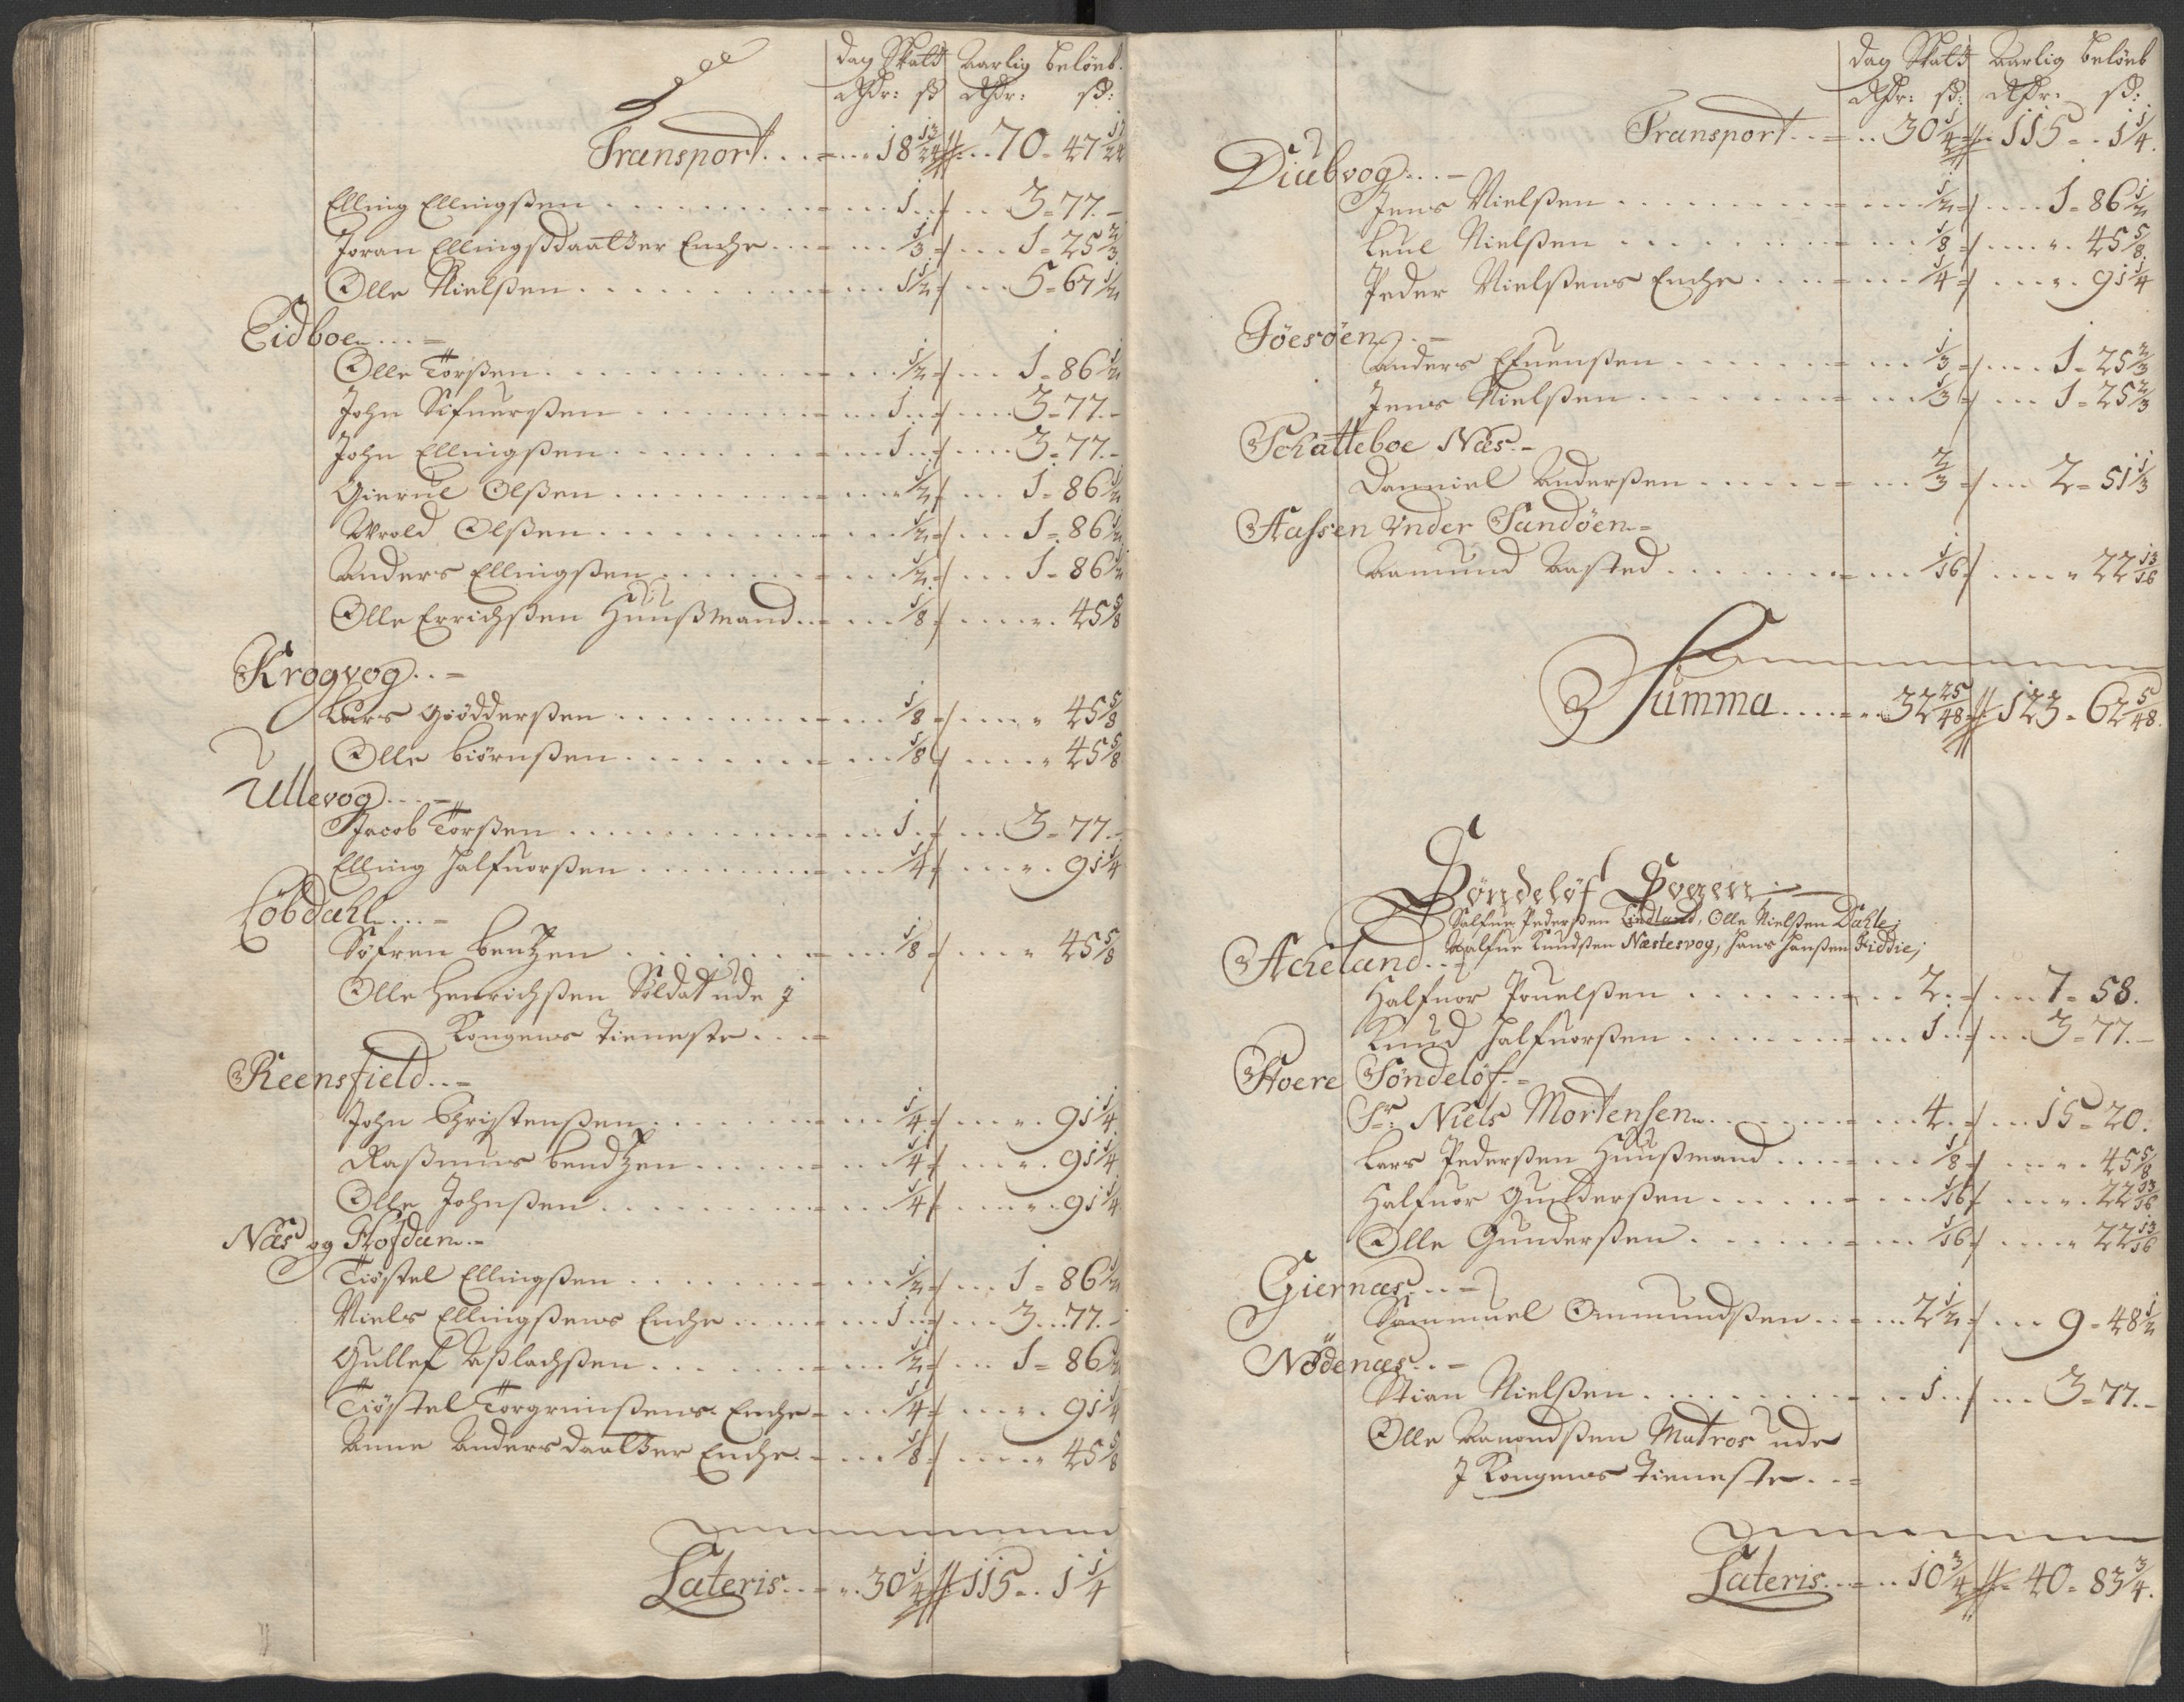 Dag Skatt Aarlig beløeb.
Rdr: ß Rdr: ß:
Transport . . . 18 13/24 70 - 47 17/24
Elling Ellingßen . . . 1 . . 3 - 77 . -
Joran Ellingßdaatter Enche . . . 1/3 . . 1 - 25 2/3
Olle Nielßen . . . 1 1/2 . . 5 - 67 1/2
Eidboe . . . -
Olle Torßen . . . 1/2 . . 1 - 86 1/2
John Sifuerßen . . . 1 . . 3 - 77 . -
John Ellingßen . . . 1 . . 3 - 77 . -
Gierul Olßen . . . 1/2 . . 1 - 86 1/2
Wrold Olßen . . . 1/2 . . 1 - 86 1/2
Anders Ellingßen . . . 1/2 . . 1 - 86 1/2
Olle Errichßen Huußmand . . . 1/8 . . " . 45 5/8
Krogvog . . -
Lars Giødderßen . . . 1/8 . . " 45 5/8
Olle biørnßen . . . 1/8 . . " 45 5/8
Ullevog . . . -
Jacob Torßen . . . 1 . . 3 - 77 . -
Elling Halfuorßen . . . 1/4 . . " . 91 1/4
Løbdahl . . . -
Søfren bentzen . . . 1/8 . . " 45 5/8
Olle Henrichßen Soldatt ude j
Kongens Tieneste . . . =
Reensfield . . -
John Christenßen . . . 1/4 . . " . 91 1/4
Raßmus bendtzen . . . 1/4 . . " . 91 1/4
Olle Johnßen . . . 1/4 . . " . 91 1/4
Næs og Hofdam . -
Tiøstel Ellingßen . . . 1/2 . . 1 - 86 1/2
Niels Ellingßens Enche . . . 1 . . 3 . . 77 . -
Gullef Aßlachßen . . . 1/2 . . 1 - 86 1/2
Tiøstel Torgrimßens Enche - . . 1/4 . . " . 91 1/4
Anne Andersdaatter Enche . - . . 1/8 . . " 45 5/8
Lateris . . - " . 30 1/4 115 - . 1 1/4
Dag Skatt Aarlig beløeb
Rdr: ß: Rdr: ß:
Transport . . - . . 30 1/4 115 - . 1 1/4
Diubvog . . . -
Jens Nielßen . . . 1/2 . . 1 - 86 1/2
Leul Nielßen . . . 1/8 . . " . 45 5/8
Peder Nielßens Enche . . . 1/4 . . " . 91 1/4
Giøesøen . -
Anders Efuenßen . . . 1/3 . . 1 - 25 2/3
Jens Nielßen . . . 1/3 . . 1 - 25 2/3
Schatteboe Næs . -
Danniel Anderßen . . . 2/3 . . 2 - 51 1/3
Haffsen Under Sandøen . =
Aamund Aasted . . . 1/16 . . " 22 13/16
Summa . . . . 32 25/48 123 - 62 5/48
Søndeløf Sogen
Salfue Pederßen Lindland, Olle Nielßen Dahle;
Aalfue Knudßen Næstesvog, Hans Hanßen Fiddie;
Acheland . . -
Halfuor Pouelßen . . . 2 . . 7 - 58 .
Knud Halfuorßen . . . 1 . . 3 - 77 . -
Hoere Søndeløf . =
Sr: Niels Mortensen . . . 4 . . 15 - 20 .
Lars Pederßen Huußmand . . . 1/8 . . " . 45 5/8
Halfuor Gunderßen . . . 1/16 . . " . 22 13/16
Olle Gunderßen . . . 1/16 . . " 22 13/16
Giernæs . . . -
Sammuel Omundßen . . . 2 1/2 . . 9 - 48 1/2
Nødenæs . . -
Stian Nielßen . . . 1 . . 3 - 77 . -
Olle Aanondßen Matros ude
J Kongens Tieneste . . . =
Lateris . . - . . 10 3/4 40 - 83 3/4 .